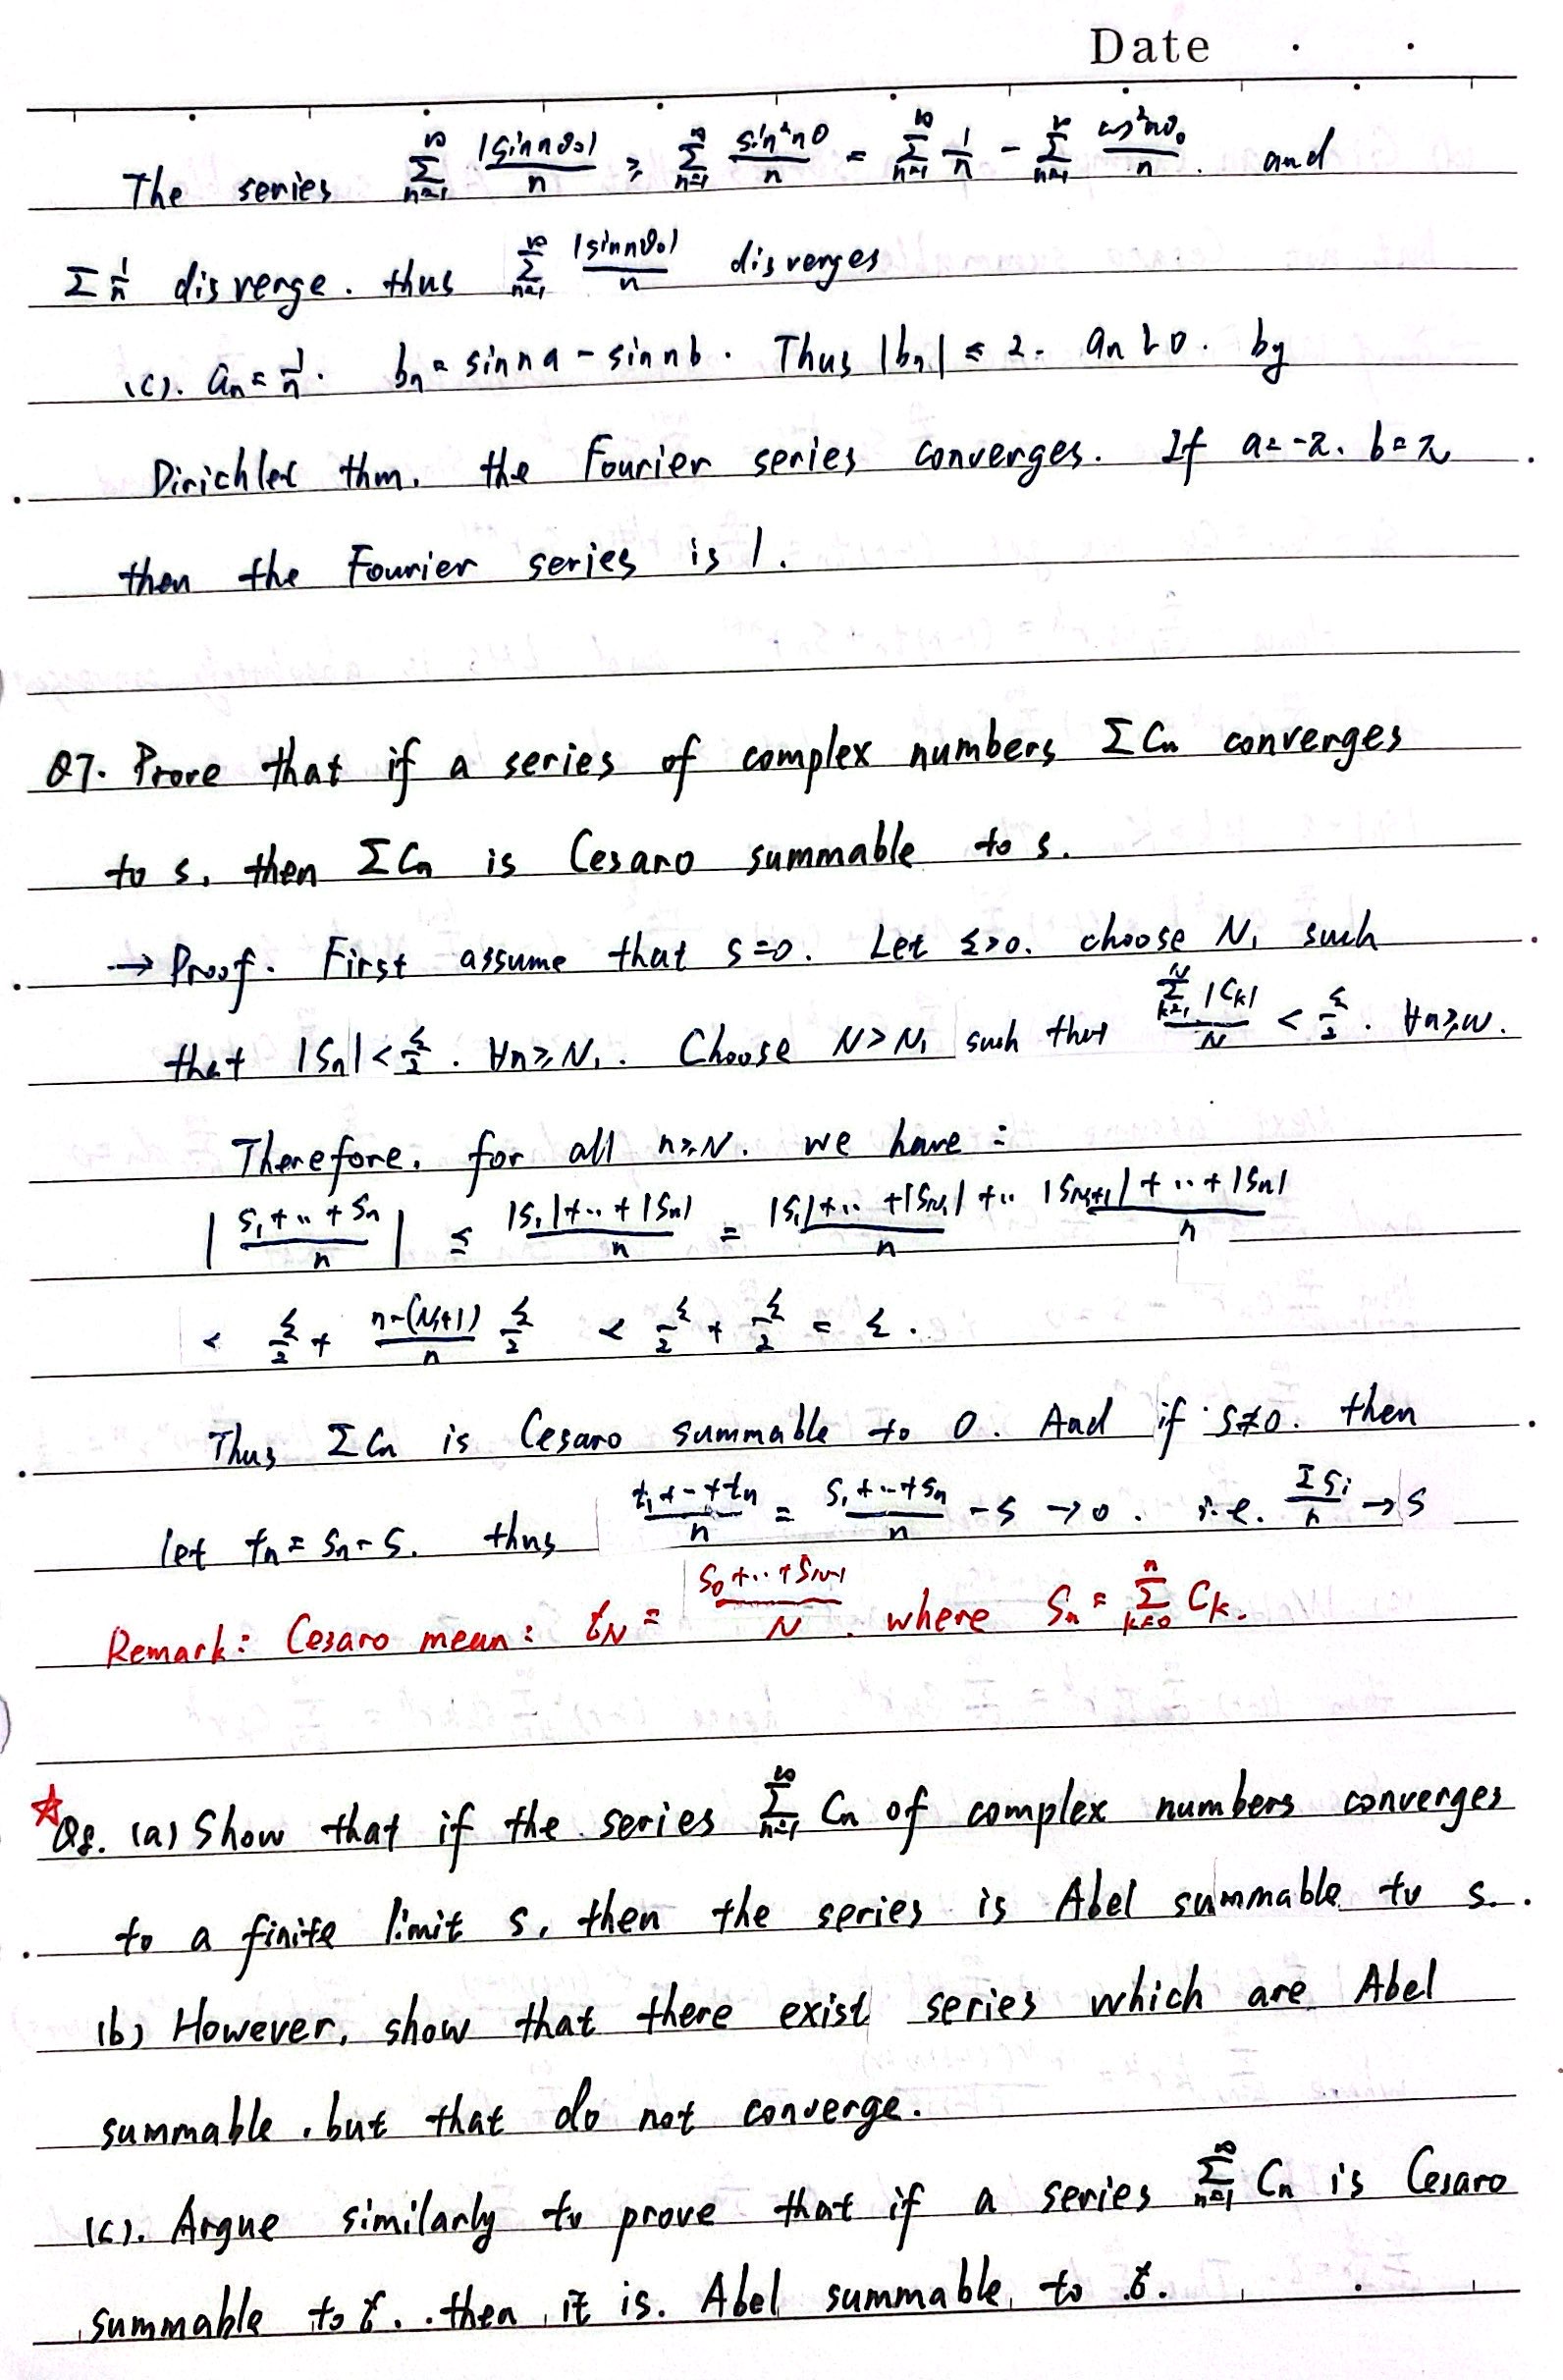 Date
The series $\sum_{n=1}^{\infty} \frac{|\sin n\theta_0|}{n} \geq \sum_{n=1}^{\infty} \frac{\sin^2 n\theta}{n} = \sum_{n=1}^{\infty} \frac{1}{n} - \sum_{n=1}^{\infty} \frac{\cos^2 n\theta_0}{n}$. and
$\Sigma \frac{1}{n}$ disverge. thus $\sum_{n=1}^{\infty} \frac{|\sin n\theta_0|}{n}$ disverges
(c). $a_n = \frac{1}{n}$. $b_n = \sin na - \sin nb$. Thus $|b_n| \leq 2$. $a_n \downarrow 0$. by
Dirichlet thm. the Fourier series converges. If $a = -\pi$. $b = \pi$
then the Fourier series is 1.
Q7. Prove that if a series of complex numbers $\Sigma C_n$ converges
to s, then $\Sigma C_n$ is Cesaro summable to s.
→ Proof. First assume that $s = 0$. Let $\varepsilon > 0$. choose $N_1$ such
that $|S_n| < \frac{\varepsilon}{2}$. $\forall n \geq N_1$. Choose $N > N_1$ such that $\frac{\sum_{k=1}^{N} |C_k|}{N} < \frac{\varepsilon}{2}$. $\forall n \geq N$.
Therefore, for all $n \geq N$. we have:
$\left| \frac{S_1 + \cdots + S_n}{n} \right| \leq \frac{|S_1| + \cdots + |S_n|}{n} = \frac{|S_1| + \cdots + |S_{N_1}|}{n} + \cdots \frac{|S_{N_1+1}| + \cdots + |S_n|}{n}$
$< \frac{\varepsilon}{2} + \frac{n - (N_1+1)}{n} \frac{\varepsilon}{2} < \frac{\varepsilon}{2} + \frac{\varepsilon}{2} = \varepsilon$.
Thus $\Sigma C_n$ is Cesaro summable to 0. And if $S \neq 0$. then
let $t_n = S_n - S$. thus $\frac{t_1 + \cdots + t_n}{n} = \frac{S_1 + \cdots + S_n}{n} - S \to 0$. i.e. $\frac{\Sigma S_i}{n} \to S$
Remark: Cesaro mean: $\sigma_N = \frac{S_0 + \cdots + S_{N-1}}{N}$. where $S_n = \sum_{k=0}^{n} C_k$.
☆Q8. (a) Show that if the series $\sum_{n=1}^{\infty} C_n$ of complex numbers converges
to a finite limit s, then the series is Abel summable to s.
(b) However, show that there exist series which are Abel
summable, but that do not converge.
(c). Argue similarly to prove that if a series $\sum_{n=1}^{\infty} C_n$ is Cesaro
summable to σ. then it is. Abel summable to σ.